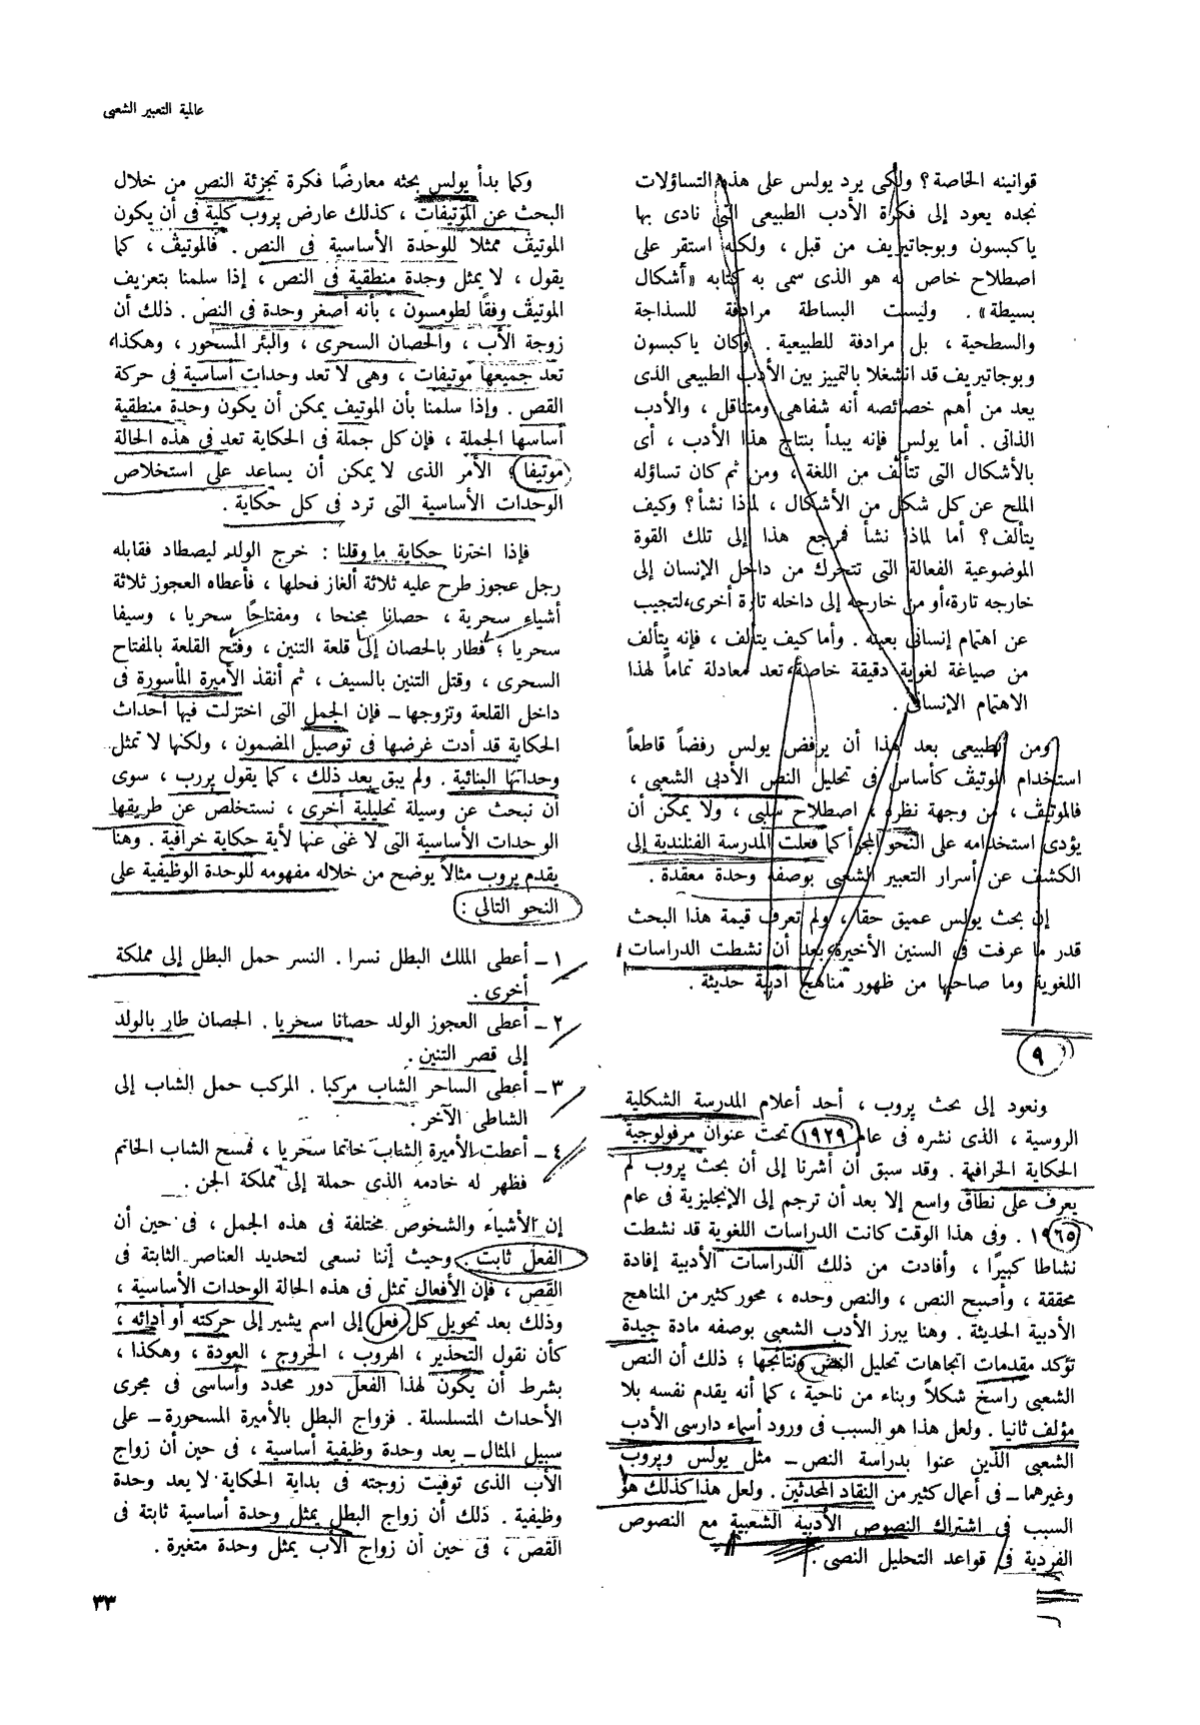 عالمية التعبير الشعبى
قوانينه الخاصة؟ ولكى يرد يولس على هذه التساؤلات
نجده يعود إلى فكرة الأدب الطبيعى التى نادى بها
ياكبسون وبوجاتيريف من قبل ، ولكنه استقر على
اصطلاح خاص له هو الذى سمى به كتابه «أشكال
بسيطة» . وليست البساطة مرادفة للسذاجة
والسطحية ، بل مرادفة للطبيعية . وكان ياكبسون
وبوجاتيريف قد انشغلا بالتمييز بين الأدب الطبيعى الذى
يعد من أهم خصائصه أنه شفاهى ومتناقل ، والأدب
الذاتى . أما يولس فإنه يبدأ بنتاج هذا الأدب ، أى
بالأشكال التى تتألف من اللغة ، ومن ثم كان تساؤله
الملح عن كل شكل من الأشكال ، لماذا نشأ؟ وكيف
يتألف؟ أما لماذا نشأ فمرجع هذا إلى تلك القوة
الموضوعية الفعالة التى تتحرك من داخل الإنسان إلى
خارجه تارة،أو من خارجه إلى داخله تارة أخرى،لتجيب
عن اهتمام إنسانى بعينه . وأما كيف يتألف ، فإنه يتألف
من صياغة لغوية دقيقة خاصة،تعد معادلة تماماً لهذا
الاهتمام الإنسانى .
ومن الطبيعى بعد هذا أن يرفض يولس رفضاً قاطعاً
استخدام الموتيف كأساس فى تحليل النص الأدبى الشعبى ،
فالموتيف ، من وجهة نظره ، اصطلاح سلبى ، ولا يمكن أن
يؤدى استخدامه على النحو المجزأ كما فعلت المدرسة الفنلندية إلى
الكشف عن أسرار التعبير الشعبى بوصفه وحدة معقدة .
إن بحث يولس عميق حقا ، ولم تعرف قيمة هذا البحث
قدر ما عرفت فى السنين الأخيرة،بعد أن نشطت الدراسات
اللغوية وما صاحبها من ظهور مناهج أدبية حديثة .
٩
ونعود إلى بحث پروب ، أحد أعلام المدرسة الشكلية
الروسية ، الذى نشره فى عام ١٩٢٩ تحت عنوان مرفولوجية
الحكاية الخرافية . وقد سبق أن أشرنا إلى أن بحث پروب لم
يعرف على نطاق واسع إلا بعد أن ترجم إلى الإنجليزية فى عام
١٩٦٥ . وفى هذا الوقت كانت الدراسات اللغوية قد نشطت
نشاطا كبيرًا ، وأفادت من ذلك الدراسات الأدبية إفادة
محققة ، وأصبح النص ، والنص وحده ، محور كثير من المناهج
الأدبية الحديثة . وهنا يبرز الأدب الشعبى بوصفه مادة جيدة
تؤكد مقدمات اتجاهات تحليل النص ونتائجها ؛ ذلك أن النص
الشعبى راسخ شكلاً وبناء من ناحية ، كما أنه يقدم نفسه بلا
مؤلف ثانيا . ولعل هذا هو السبب فى ورود أسماء دارسى الأدب
الشعبى الذين عنوا بدراسة النص – مثل يولس وپروب
وغيرهما – فى أعمال كثير من النقاد المحدثين . ولعل هذا كذلك هو
السبب فى اشتراك النصوص الأدبية الشعبية مع النصوص
الفردية فى قواعد التحليل النصى .
وكما بدأ يولس بحثه معارضًا فكرة تجزئة النص من خلال
البحث عن الموتيفات ، كذلك عارض پروب كلية فى أن يكون
الموتيف ممثلا للوحدة الأساسية فى النص . فالموتيف ، كما
يقول ، لا يمثل وحدة منطقية فى النص ، إذا سلمنا بتعريف
الموتيف وفقًا لطومسون ، بأنه أصغر وحدة فى النص . ذلك أن
زوجة الأب ، والحصان السحرى ، والبئر المسحور ، وهكذا،
تعد جميعها موتيفات ، وهى لا تعد وحدات أساسية فى حركة
القص . وإذا سلمنا بأن الموتيف يمكن أن يكون وحدة منطقية
أساسها الجملة ، فإن كل جملة فى الحكاية تعد فى هذه الحالة
موتيفا ، الأمر الذى لا يمكن أن يساعد على استخلاص
الوحدات الأساسية التى ترد فى كل حكاية .
فإذا اخترنا حكاية ما وقلنا : خرج الولد ليصطاد فقابله
رجل عجوز طرح عليه ثلاثة ألغاز فحلها ، فأعطاه العجوز ثلاثة
أشياء سحرية ، حصانا مجنحا ، ومفتاحًا سحريا ، وسيفا
سحريا ؛ فطار بالحصان إلى قلعة التنين ، وفتح القلعة بالمفتاح
السحرى ، وقتل التنين بالسيف ، ثم أنقذ الأميرة المأسورة فى
داخل القلعة وتزوجها – فإن الجمل التى اختزلت فيها أحداث
الحكاية قد أدت غرضها فى توصيل المضمون ، ولكنها لا تمثل
وحداتها البنائية . ولم يبق بعد ذلك ، كما يقول پروب ، سوى
أن نبحث عن وسيلة تحليلية أخرى ، نستخلص عن طريقها
الوحدات الأساسية التى لا غنى عنها لأية حكاية خرافية . وهنا
يقدم پروب مثالاً يوضح من خلاله مفهومه للوحدة الوظيفية على
النحو التالى :
١ – أعطى الملك البطل نسرا . النسر حمل البطل إلى مملكة
أخرى .
٢ – أعطى العجوز الولد حصانا سحريا . الحصان طار بالولد
إلى قصر التنين .
٣ – أعطى الساحر الشاب مركبا . المركب حمل الشاب إلى
الشاطئ الآخر .
٤ – أعطت الأميرة الشاب خاتما سحريا ، فمسح الشاب الخاتم
فظهر له خادمه الذى حملة إلى مملكة الجن .
إن الأشياء والشخوص مختلفة فى هذه الجمل ، فى حين أن
الفعل ثابت . وحيث إننا نسعى لتحديد العناصر الثابتة فى
القص ، فإن الأفعال تمثل فى هذه الحالة الوحدات الأساسية ،
وذلك بعد تحويل كل فعل إلى اسم يشير إلى حركته أو أدائه ،
كأن نقول التحذير ، الهروب ، الخروج ، العودة ، وهكذا ،
بشرط أن يكون لهذا الفعل دور محدد وأساسى فى مجرى
الأحداث المتسلسلة . فزواج البطل بالأميرة المسحورة – على
سبيل المثال – يعد وحدة وظيفية أساسية ، فى حين أن زواج
الأب الذى توفيت زوجته فى بداية الحكاية لا يعد وحدة
وظيفية . ذلك أن زواج البطل يمثل وحدة أساسية ثابتة فى
القص ، فى حين أن زواج الأب يمثل وحدة متغيرة .
٣٣